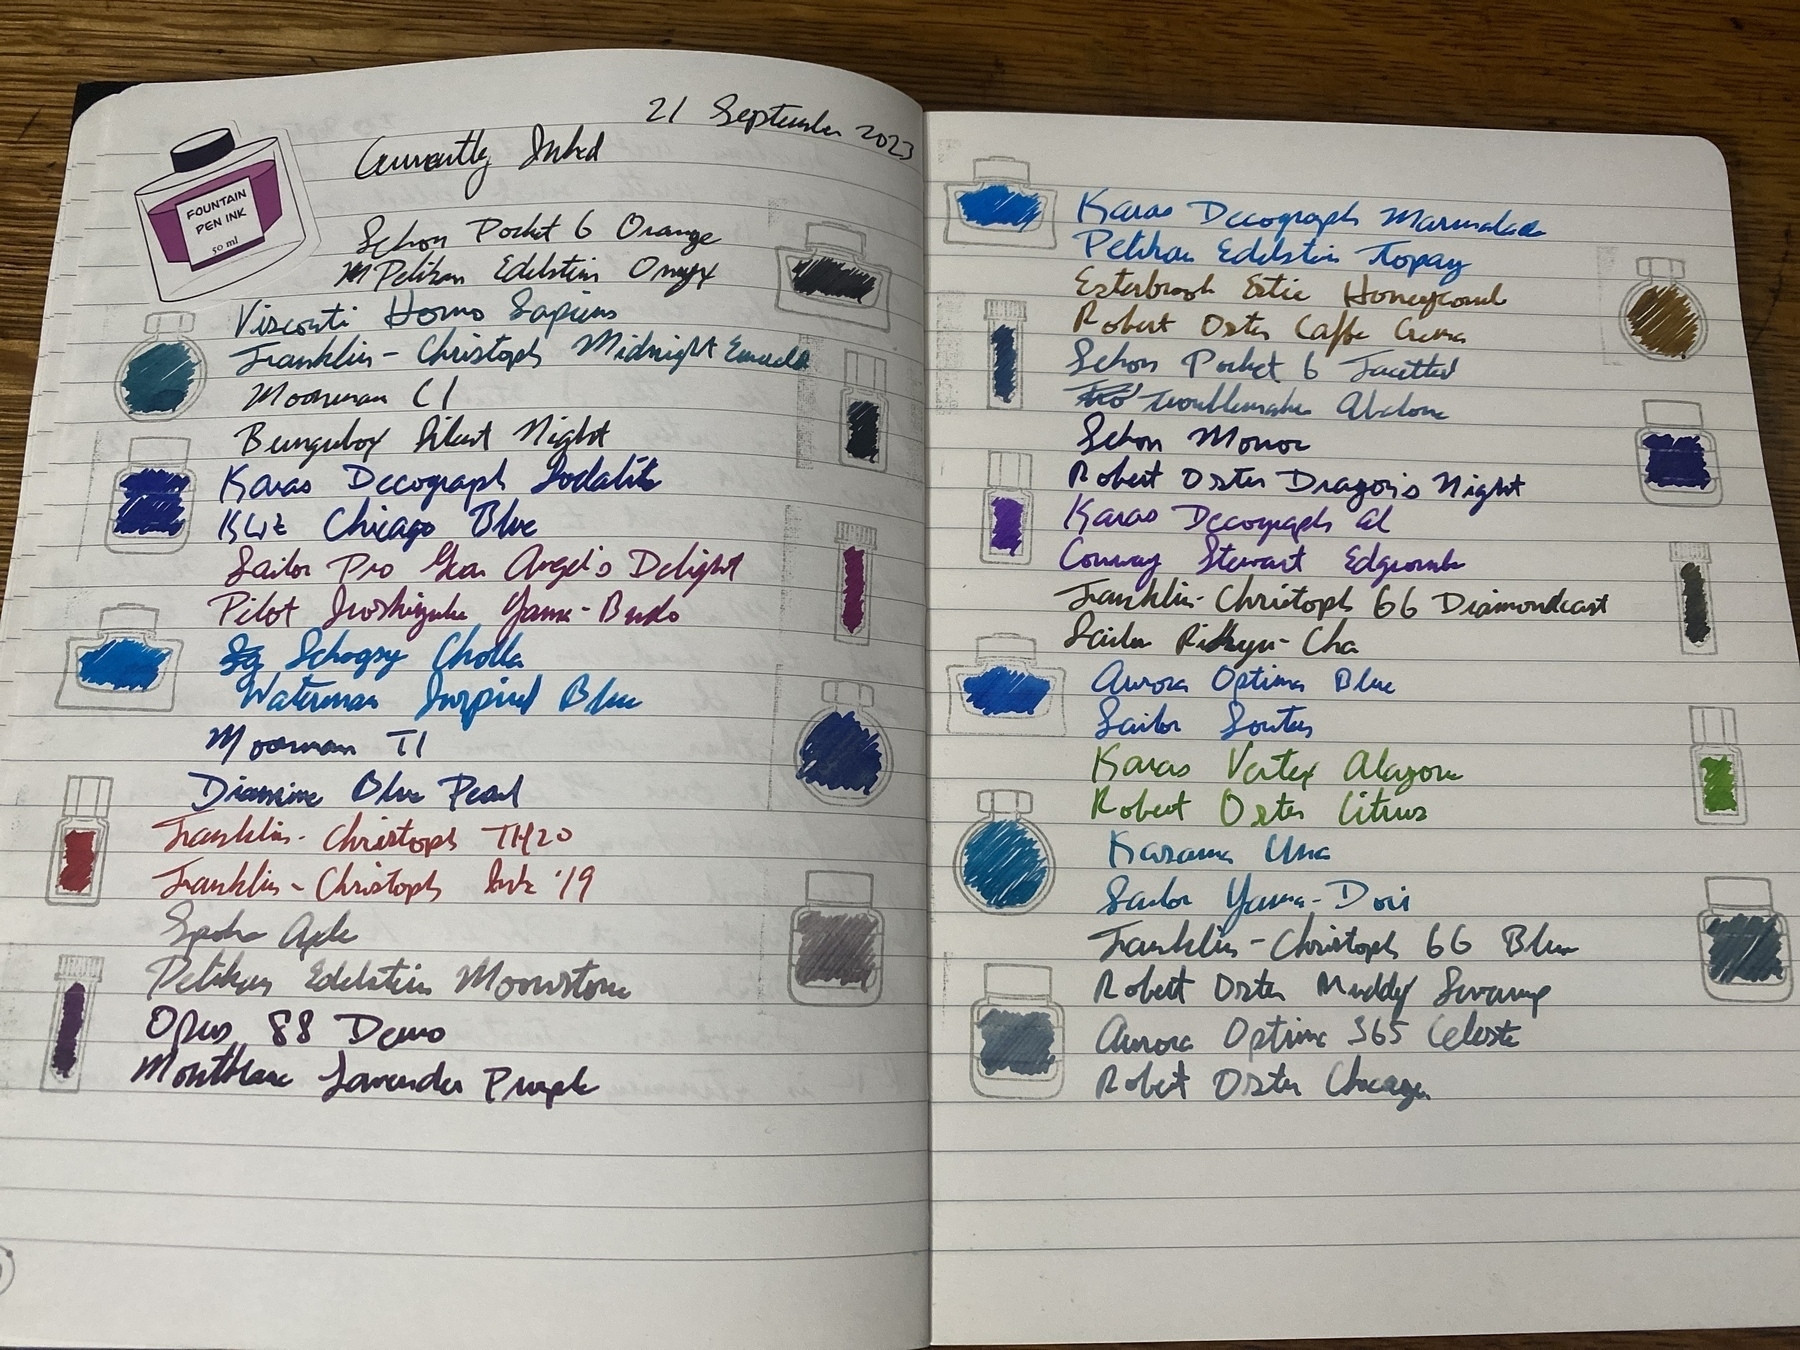 21 September 2023
Currently Inked
FOUNTAIN
PEN INK
50 ml
Schon Pocket 6 Orange
Pelikan Edelstein Onyx
Visconti Homo Sapiens
Franklin-Christoph Midnight Emerald
Moonman C1
Bungubox Silent Night
Karas Decograph Sodalite
KWZ Chicago Blue
Sailor Pro Gear Angel's Delight
Pilot Iroshizuku Yama-Budo
Schogsy Cholla
Waterman Inspired Blue
Moonman T1
Diamine Blue Pearl
Franklin-Christoph TH20
Franklin-Christoph Ink '19
Pelikan Edelstein Moonstone
Opus 88 Demo
Montblanc Lavender Purple
Karas Decograph Marmalade
Pelikan Edelstein Topaz
Esterbrook Estie Honeycomb
Robert Oster Caffe Crema
Schon Pocket 6 Facetted
Troublemaker Abalone
Schon Monoc
Robert Oster Dragon's Night
Karas Decograph al
Conway Stewart Edgcombe
Franklin-Christoph 66 Diamondcast
Sailor Rikyu-Cha
Aurora Optima Blue
Sailor Souten
Karas Vertex Alagona
Robert Oster Citrus
Kasama Una
Sailor Yama-Dori
Franklin-Christoph 66 Blue
Robert Oster Muddy Swamp
Aurora Optima 365 Celeste
Robert Oster Chicago